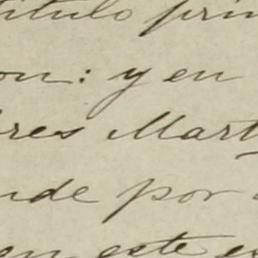 titulo prin
on: y en
res Mart
nde por
en este es